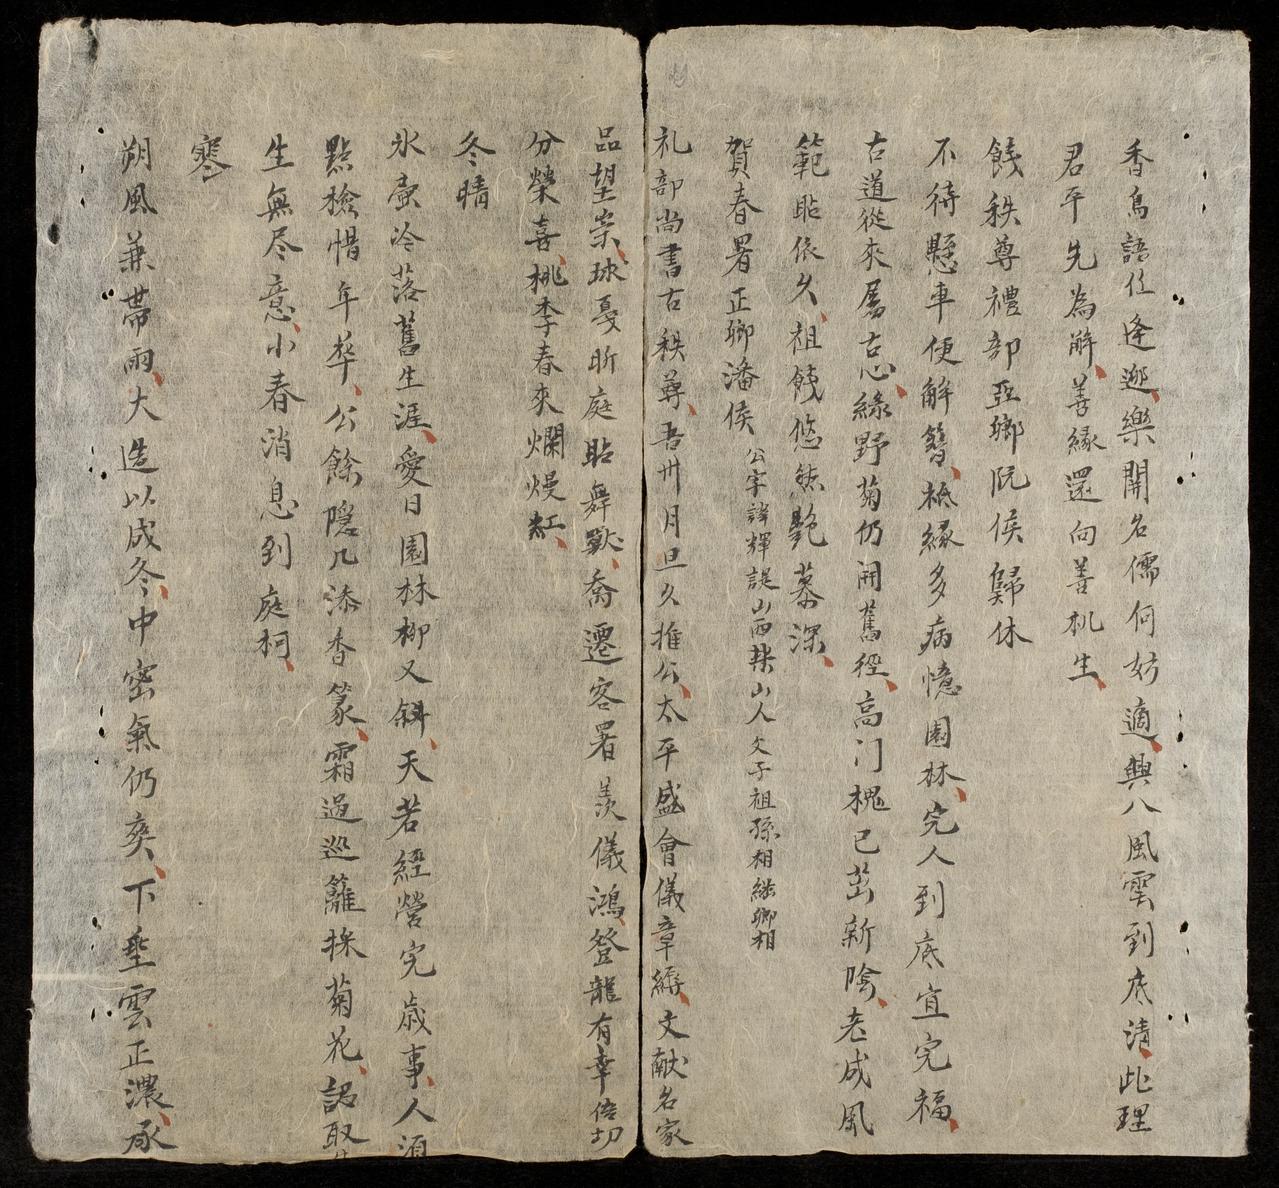 香鳥語任逢迎樂開名儒何妨適興八風雲到底清此理
君平先為解善緣還向善机生
餞秩尊禮部亞卿阮侯歸休
不待懸車便解簪柢緣多病憶園林完人到底宜完福
古道從來屬古心緑野菊仍開舊徑高门槐已茁新陰老成風
範貼依久祖餞悠然艶慕深
賀春署正卿潘侯 公字諱輝諟山西柴山人 文子祖孫相継卿相
礼部尚書古秩尊吾卅月旦久推公太平盛會儀章縟文献名家
品望崇球戞昕庭貼舞獸喬遷客署羨儀鴻登龍有幸偣切
分榮喜桃李春來爛熳紅
冬晴
氷壷冷落舊生涯愛日園林柳又斜天若經營完歳事人須
點檢惜年華公餘隠几添香篆霜過巡籬採菊花認取
生無尽意小春消息到庭柯
寒
朔風兼帶雨大造以成冬中密氣仍爽下垂雲正濃承